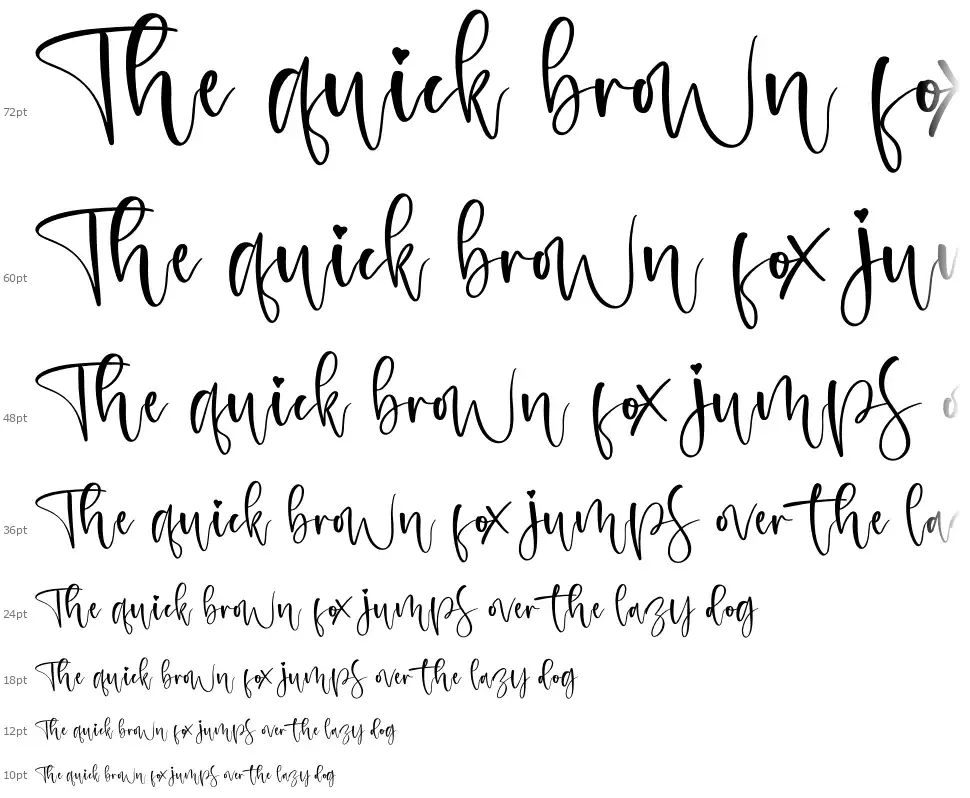 72pt The quick brown fox
60pt The quick brown fox ju
48pt The quick brown fox jumps o
36pt The quick brown fox jumps over the la
24pt The quick brown fox jumps over the lazy dog
18pt The quick brown fox jumps over the lazy dog
12pt The quick brown fox jumps over the lazy dog
10pt The quick brown fox jumps over the lazy dog